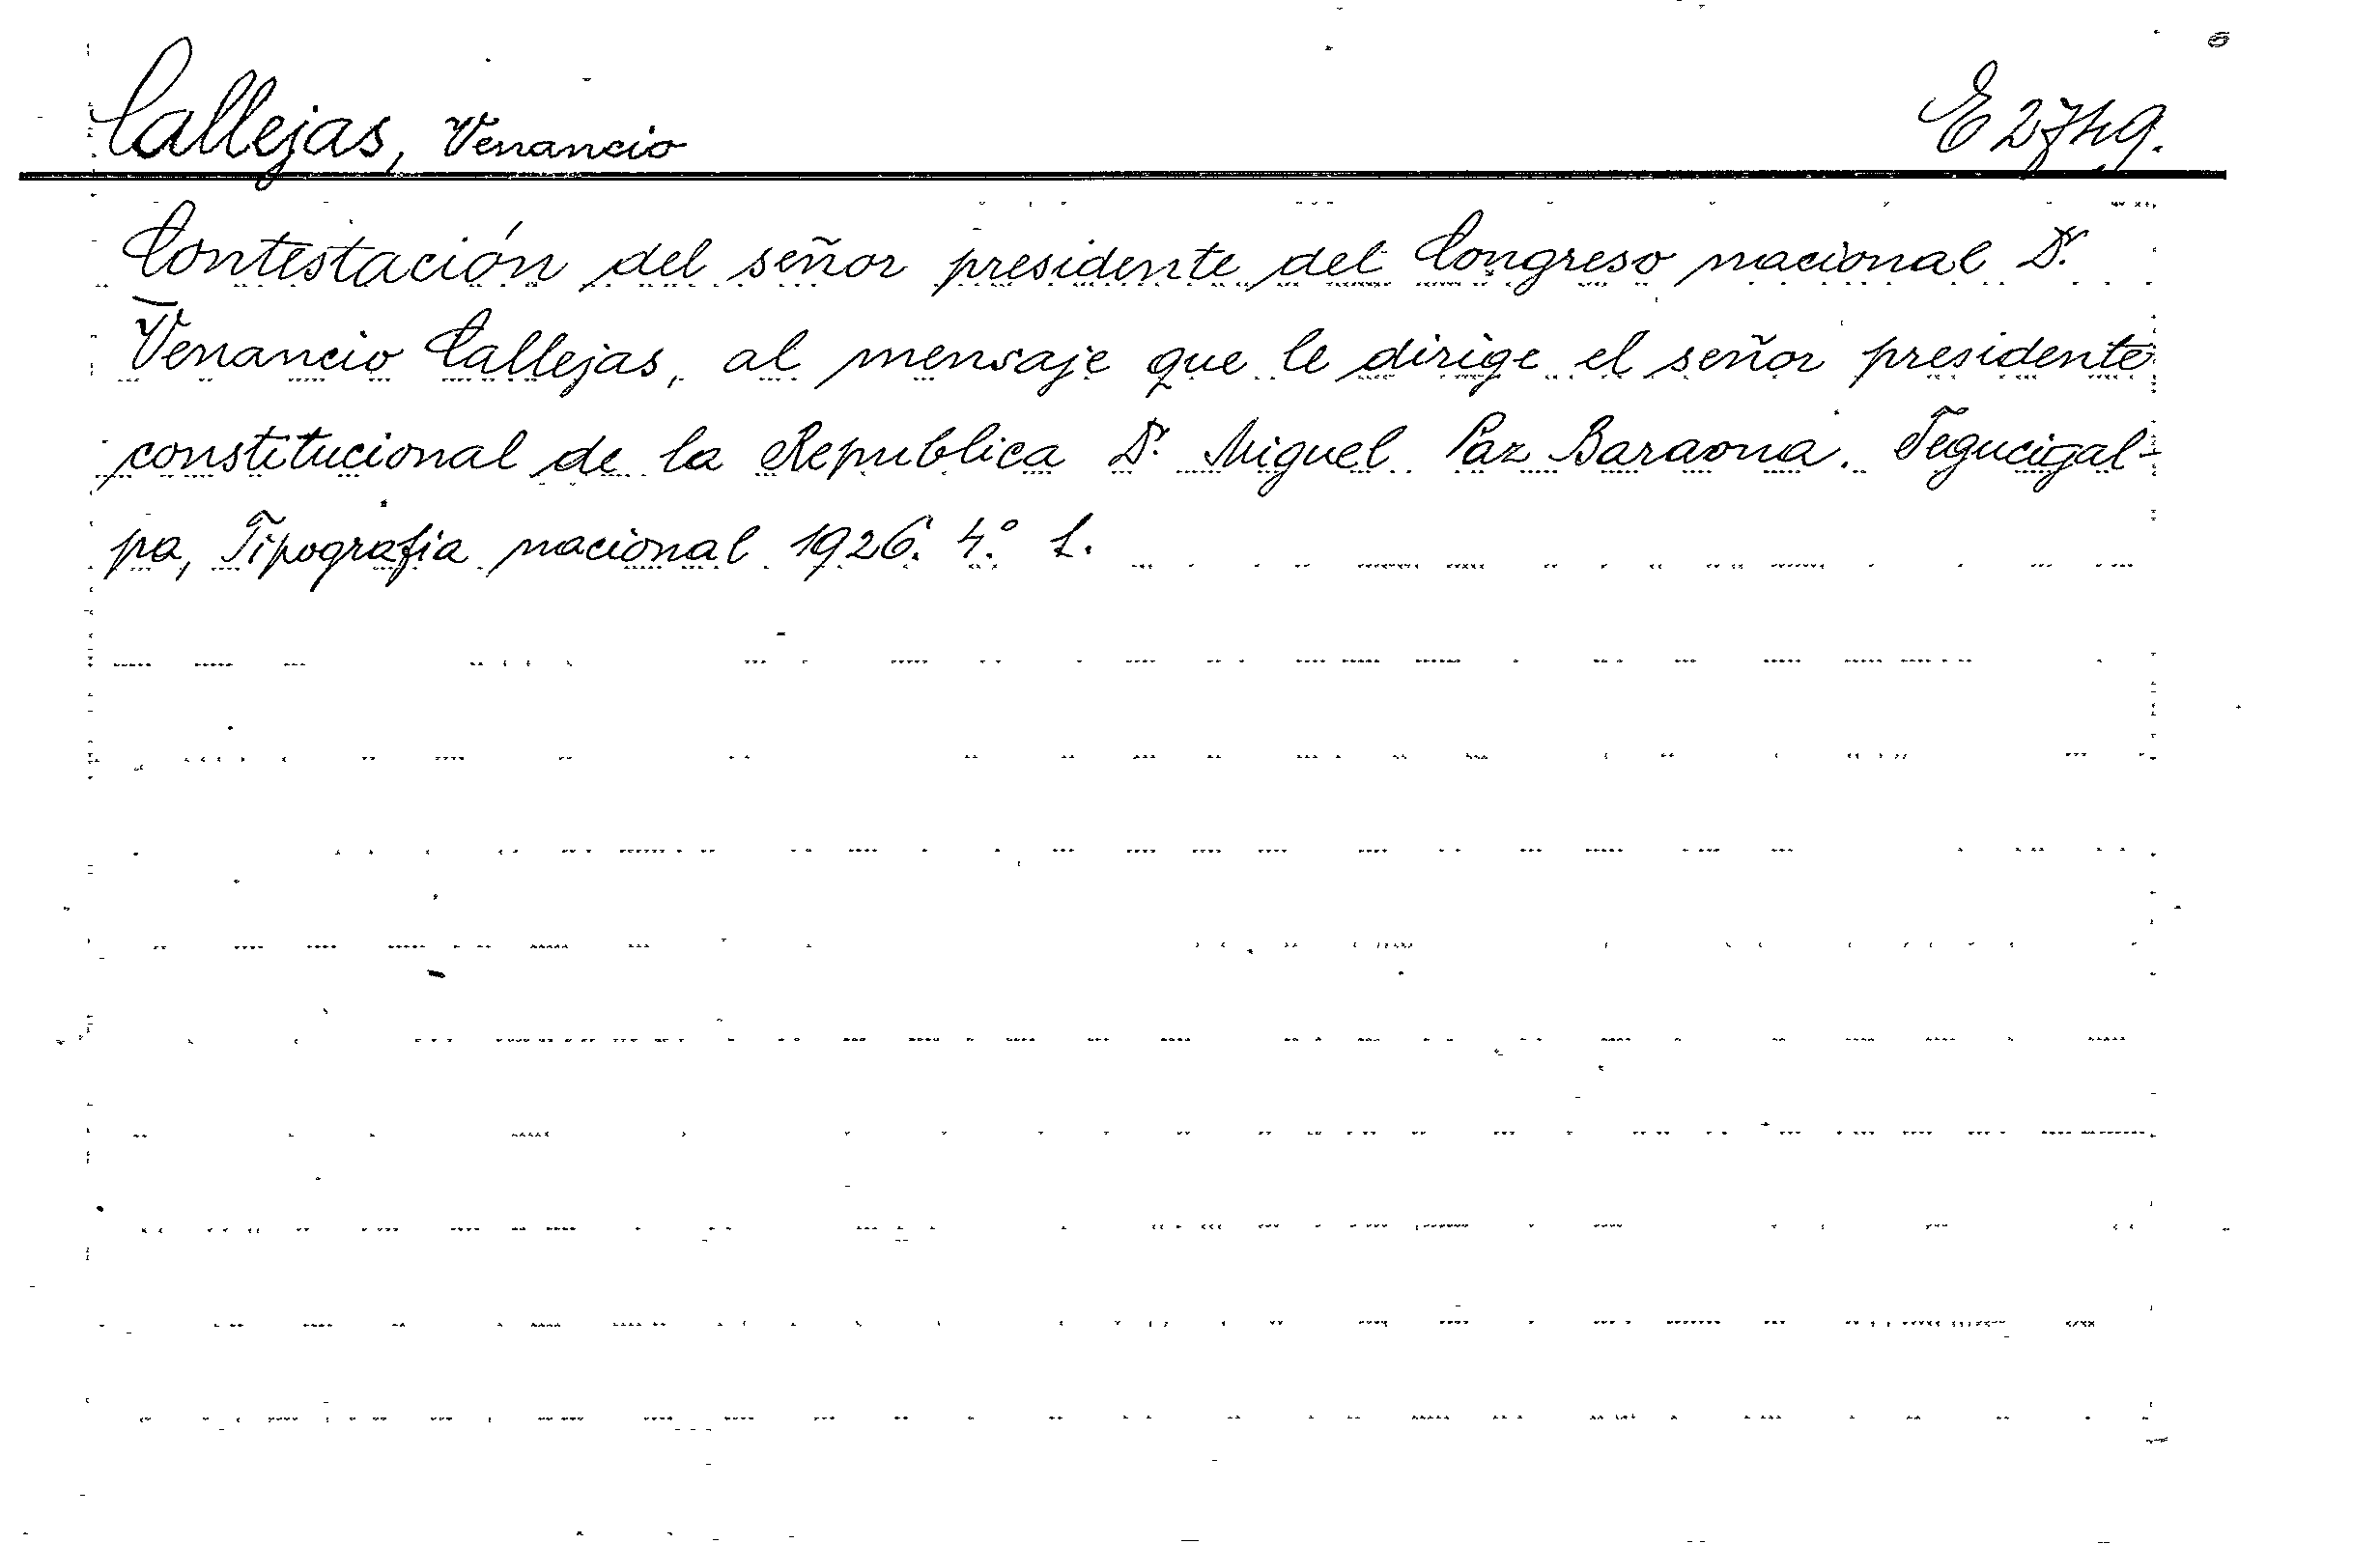 Callejas, Venancio
E 2749.
Contestación del señor presidente del Congreso nacional Dr.
Venancio Callejas, al mensaje que le dirige el señor presidente
constitucional de la Republica Dr. Miguel Paz Baraona. Tegucigal-
pa, Tipografia nacional 1926. 4.º L.